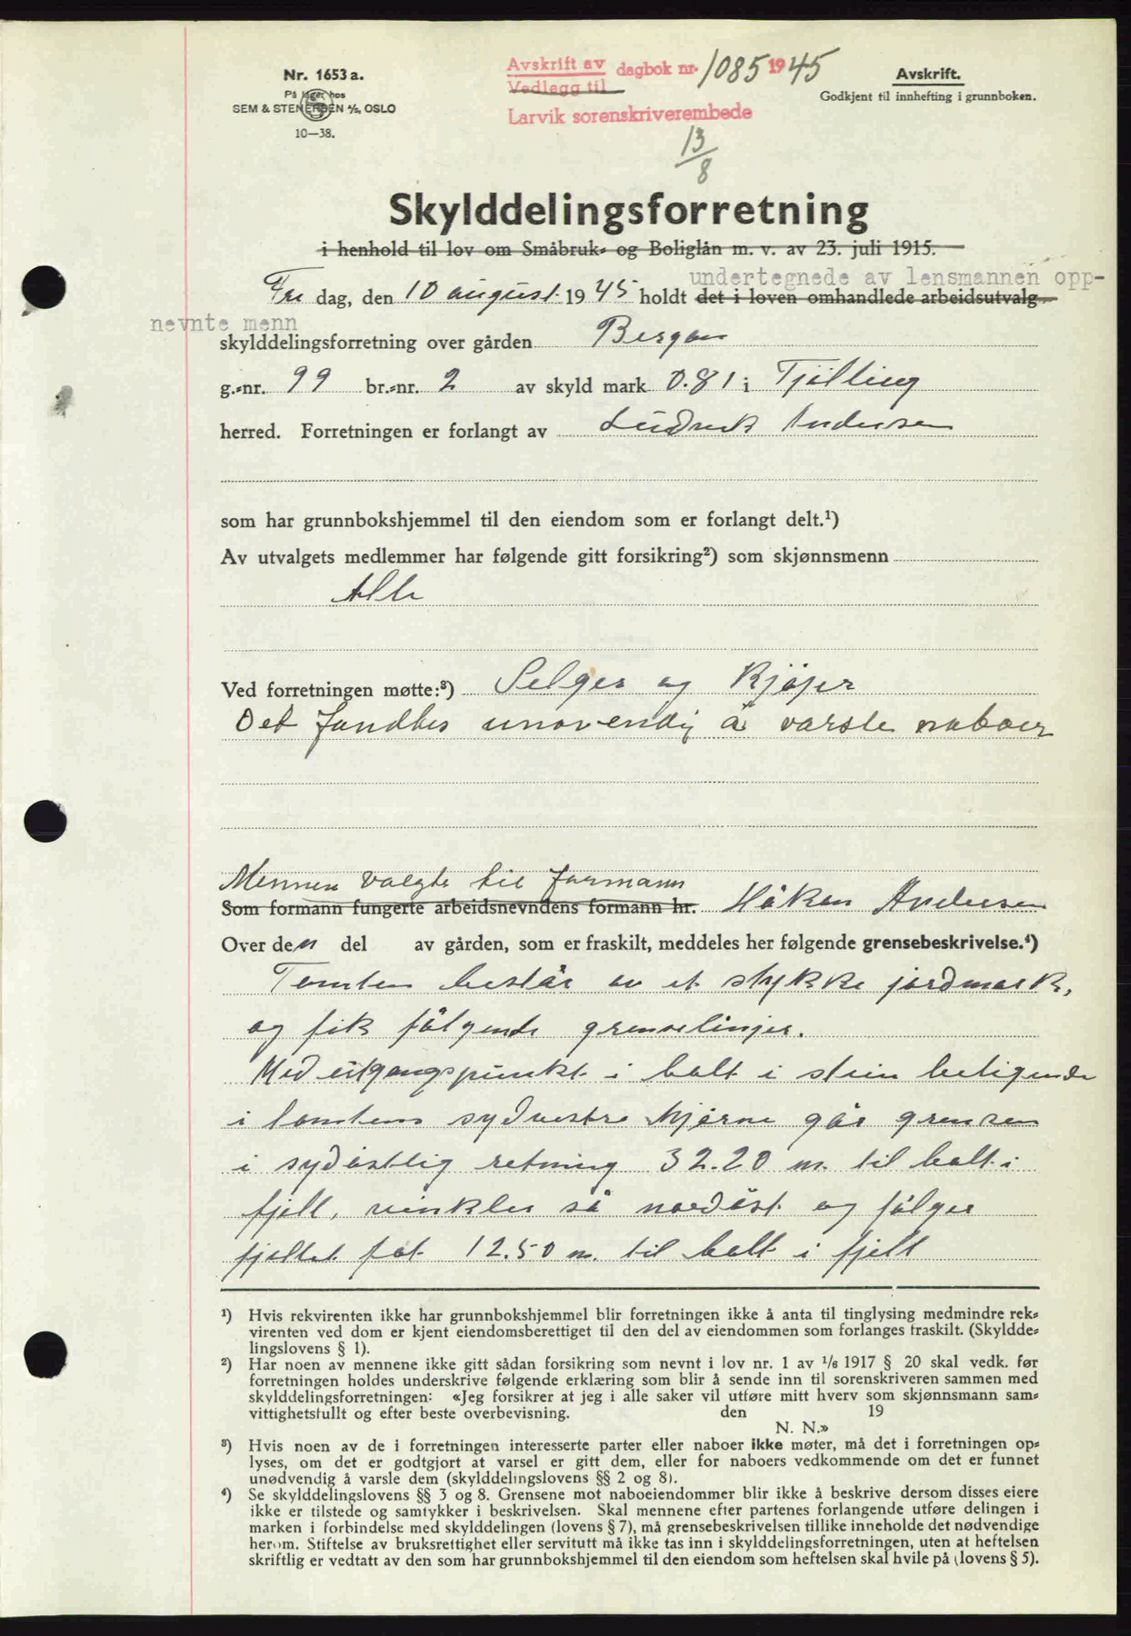 Nr. 1653 a.
På lager hos
SEM & STENERSEN A/S, OSLO
10—38.
Avskrift av
Vedlegg til
dagbok nr. 1085 1945
Larvik sorenskriverembede
13/8
Avskrift.
Godkjent til innhefting i grunnboken.
Skylddelingsforretning
i henhold til lov om Småbruk- og Boliglån m. v. av 23. juli 1915.
undertegnede av lensmannen opp-
Fre dag, den 10 august 1945 holdt det i loven omhandlede arbeidsutvalg
nevnte menn
skylddelingsforretning over gården Bergan
g.-nr. 99 br.-nr. 2 av skyld mark 0.81 i Tjølling
herred. Forretningen er forlangt av Ludvik Andersen
som har grunnbokshjemmel til den eiendom som er forlangt delt.¹)
Av utvalgets medlemmer har følgende gitt forsikring²) som skjønnsmenn
Alle
Ved forretningen møtte:³) Selger og Kjøper
Det fandtes unøvendig å varsle naboer
Mennen valgte til formann
Som formann fungerte arbeidsnevndens formann hr. Håkon Andersen
Over den del av gården, som er fraskilt, meddeles her følgende grensebeskrivelse.⁴)
Tomten består av et stykke jordmark,
og fik følgende grenselinjer.
Med utgangspunkt i bolt i stein beligende
i tomtens sydvestre hjørne går grensen
i sydøstlig retning 32.20 m. til bolt i
fjell, vinkler så nordøst og følger
fjellet fot 12.50 m. til bolt i fjell
¹) Hvis rekvirenten ikke har grunnbokshjemmel blir forretningen ikke å anta til tinglysing medmindre rek-
virenten ved dom er kjent eiendomsberettiget til den del av eiendommen som forlanges fraskilt. (Skyldde-
lingslovens § 1).
²) Har noen av mennene ikke gitt sådan forsikring som nevnt i lov nr. 1 av 1/6 1917 § 20 skal vedk. før
forretningen holdes underskrive følgende erklæring som blir å sende inn til sorenskriveren sammen med
skylddelingsforretningen: «Jeg forsikrer at jeg i alle saker vil utføre mitt hverv som skjønnsmann sam-
vittighetsfullt og efter beste overbevisning. den 19
N. N.»
³) Hvis noen av de i forretningen interesserte parter eller naboer ikke møter, må det i forretningen op-
lyses, om det er godtgjort at varsel er gitt dem, eller for naboers vedkommende om det er funnet
unødvendig å varsle dem (skylddelingslovens §§ 2 og 8).
⁴) Se skylddelingslovens §§ 3 og 8. Grensene mot naboeiendommer blir ikke å beskrive dersom disses eiere
ikke er tilstede og samtykker i beskrivelsen. Skal mennene efter partenes forlangende utføre delingen i
marken i forbindelse med skylddelingen (lovens § 7), må grensebeskrivelsen tillike inneholde det nødvendige
herom. Stiftelse av bruksrettighet eller servitutt må ikke tas inn i skylddelingsforretningen, uten at heftelsen
skriftlig er vedtatt av den som har grunnbokshjemmel til den eiendom som heftelsen skal hvile på (lovens § 5).